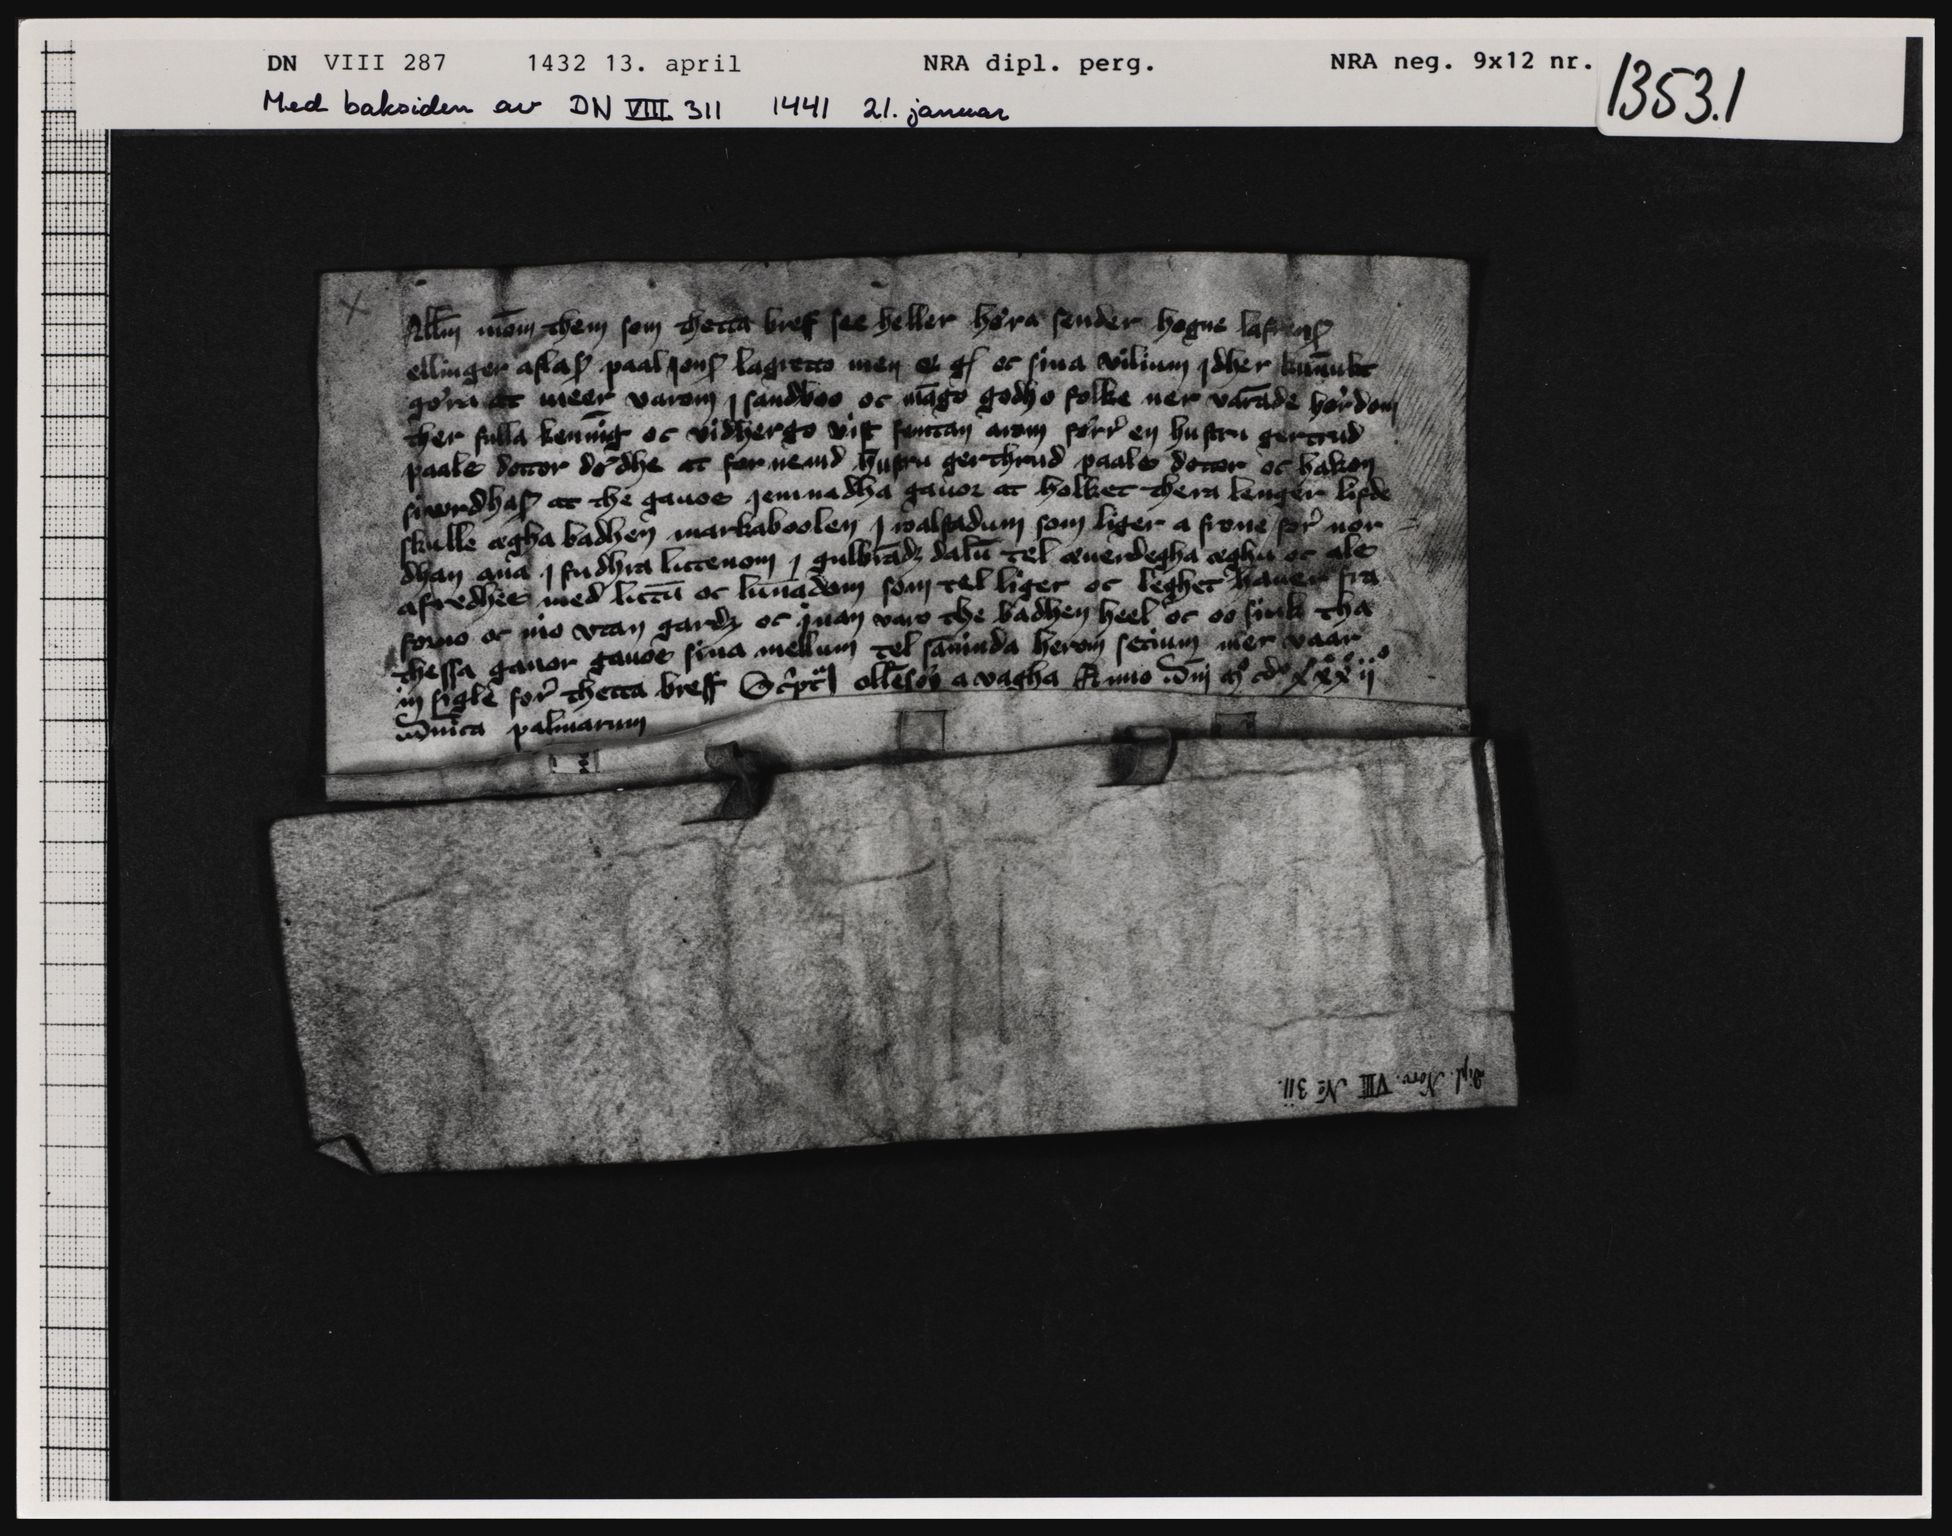 DN VIII 287 1432 13. april NRA dipl. perg. NRA neg. 9x12 nr. 1353.1
Med baksiden av DN VIII 311 1441 21. januar
Allm̄ mo̅m them som thetta breff see heller høra sender hogne
ellinger aslaß paal jonß lagretto men q. g. oc sina vilium jdher kunnukt
gøra at meer varom j sandboo oc ma̅go godho folke ner vara̅de hørdom
ther fulla kenni̅g oc vidhergo vist femtan arom førr en hustru gertrud
paals dottor dødhe at for nemd hustru gerthrud paals dottor oc hakon
siwrdhaß at the gauos jemnadha gauor at holket thera lenger lifde
skulle ægha badhen markaboolen j valstadum som liger a frone for nor
dhan ana j sudhra luttenom j gulbra̅dz dalu̅ tel æuerdegha æghu oc als
afredhes med luttu̅ oc lunnadom som tel liger oc leghet hauer fra
forno oc nio vtan gardz oc jnnan varo the badhen heel oc oo siuk tha
thessa gauor gauos sina mellum tel sanninda herom setium mer vaar
in sigle for thetta breff a vagha Anno dn̄j mº cdº xºxºxºijº
dn̄ica palmarum
Dipl. Norv. VIII Nº 311.